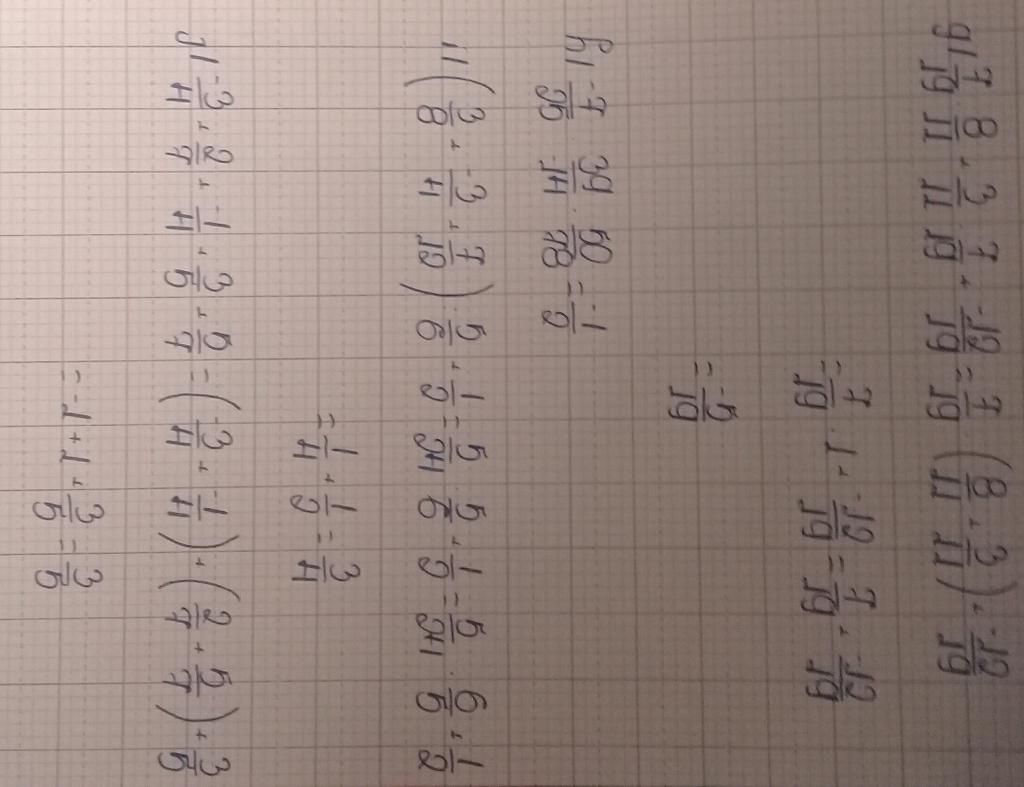 g) 7/19 · 8/11 + 3/11 · 7/19 + -12/19 = 7/19 · (8/11 + 3/11) + -12/19
= 7/19 · 1 + -12/19 = 7/19 + -12/19
= -5/19
h) -7/25 · 39/-14 · 50/78 = -1/2
i) (3/8 + -3/4 + 7/12) : 5/6 + 1/2 = 5/24 : 5/6 + 1/2 = 5/24 · 6/5 + 1/2
= 1/4 + 1/2 = 3/4
j) -3/4 + 2/7 + -1/4 + 3/5 + 5/7 = (-3/4 + -1/4) + (2/7 + 5/7) + 3/5
= -1 + 1 + 3/5 = 3/5